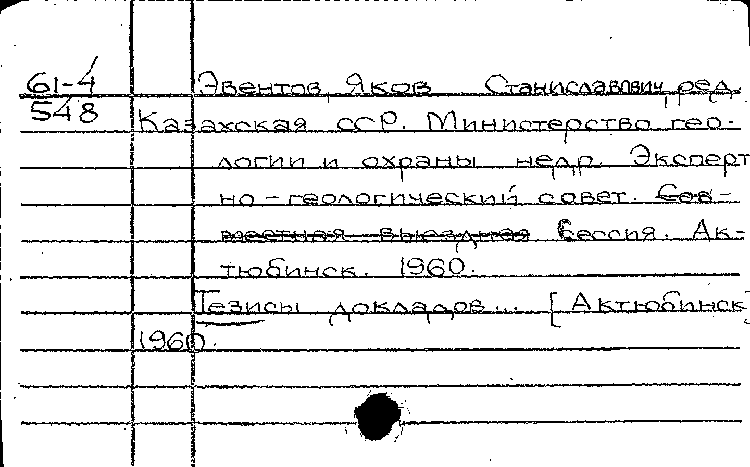 61-4 Эвентов, Яков Станиславович, ред.
548 Казахская ССР. Министерство гео-
логии и охраны недр. Эксперт
но-геологический совет. Сов-
местная выездная Сессия. Ак-
тюбинск. 1960.
Тезисы докладов... [Актюбинск]
1960.